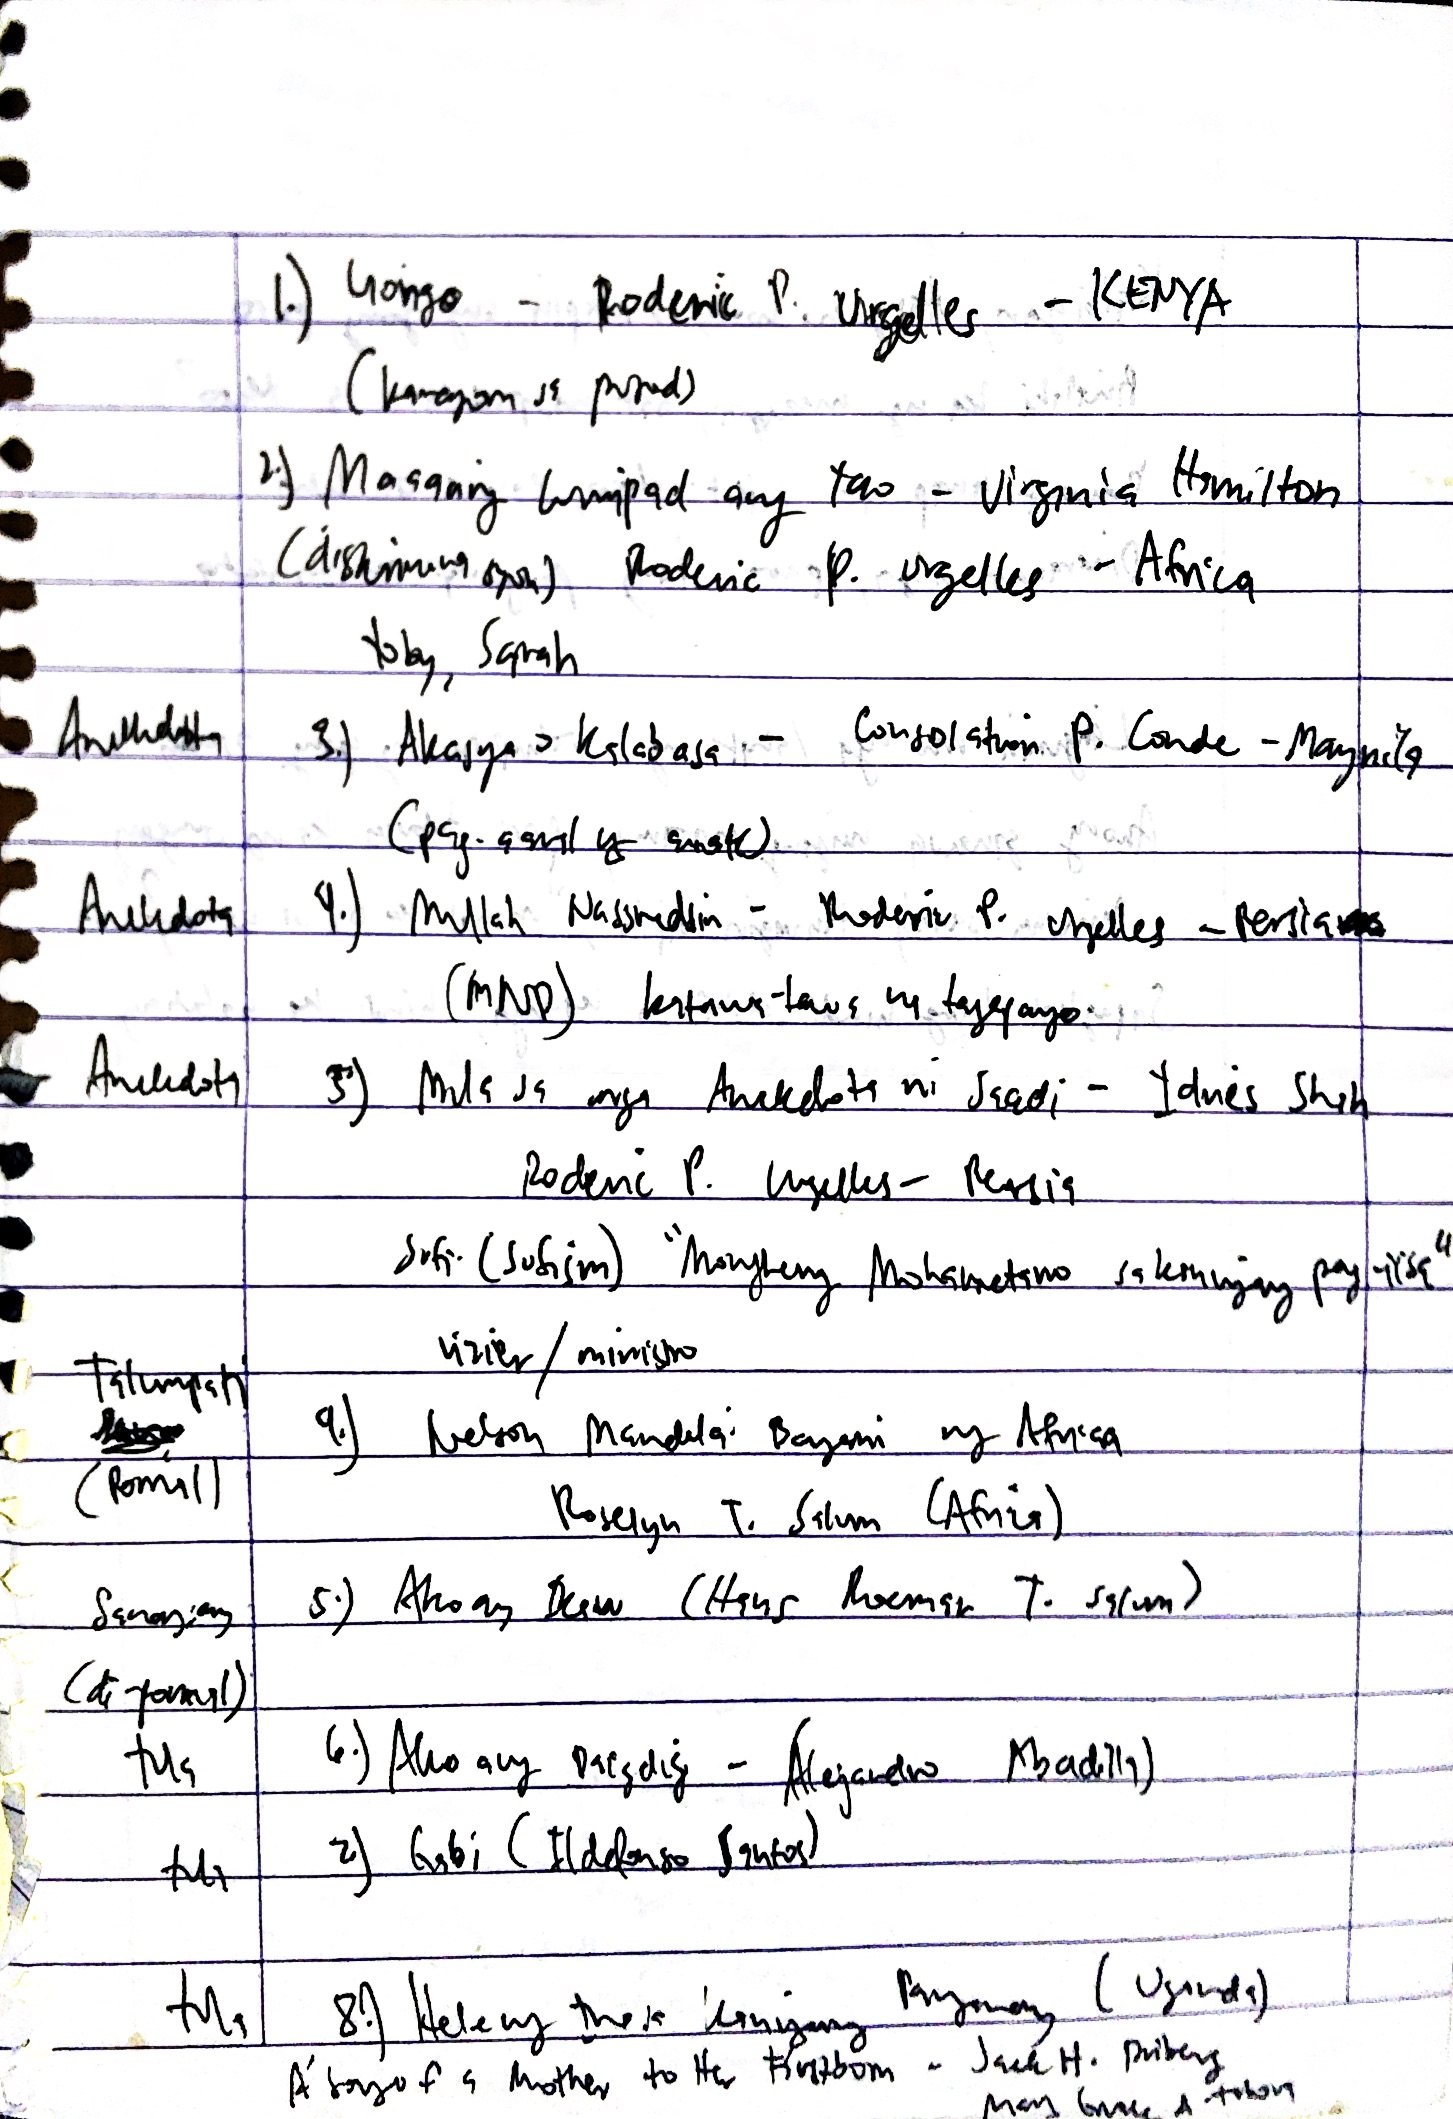 1.) Liongo - Roderic P. Urgelles - KENYA
(kanayon sa pusod)
2.) Maaaring lumipad ang tao - Virginia Hamilton
(diskriminasyon) Roderic P. Urgelles - Africa
Toby, Sarah
Anekdota 3.) Akasya o Kalabasa - Consolation P. Conde - Maynila
(pag-aaral ng anak)
Anekdota 4.) Mullah Nassreddin - Roderic P. Urgelles - Persia
(MND) katawa-tawa na tagapayo.
Anekdota 5) Mula sa mga Anekdota ni Saadi - Idries Shah
Roderic P. Urgelles - Persia
Sufi (Sufism) "Mongheng Mohametano sa kaniyang pag-iisa"
vizier/ministro
Talumpati
(Pormal) 4.) Nelson Mandela: Bayani ng Africa
Roselyn T. Salum (Africa)
Sanaysay 5.) Ako ay Ikaw (Hans Roemar T. Salum)
(di-pormal)
tula 6.) Ako ang Daigdig - (Alejandro Abadilla)
tula 7) Gabi (Ildefonso Santos)
tula 8.) Hele ng Ina sa kaniyang Panganay (Uganda)
A song of a Mother to Her Firstborn - Jack H. Driberg
Mary Grace A. Tabora